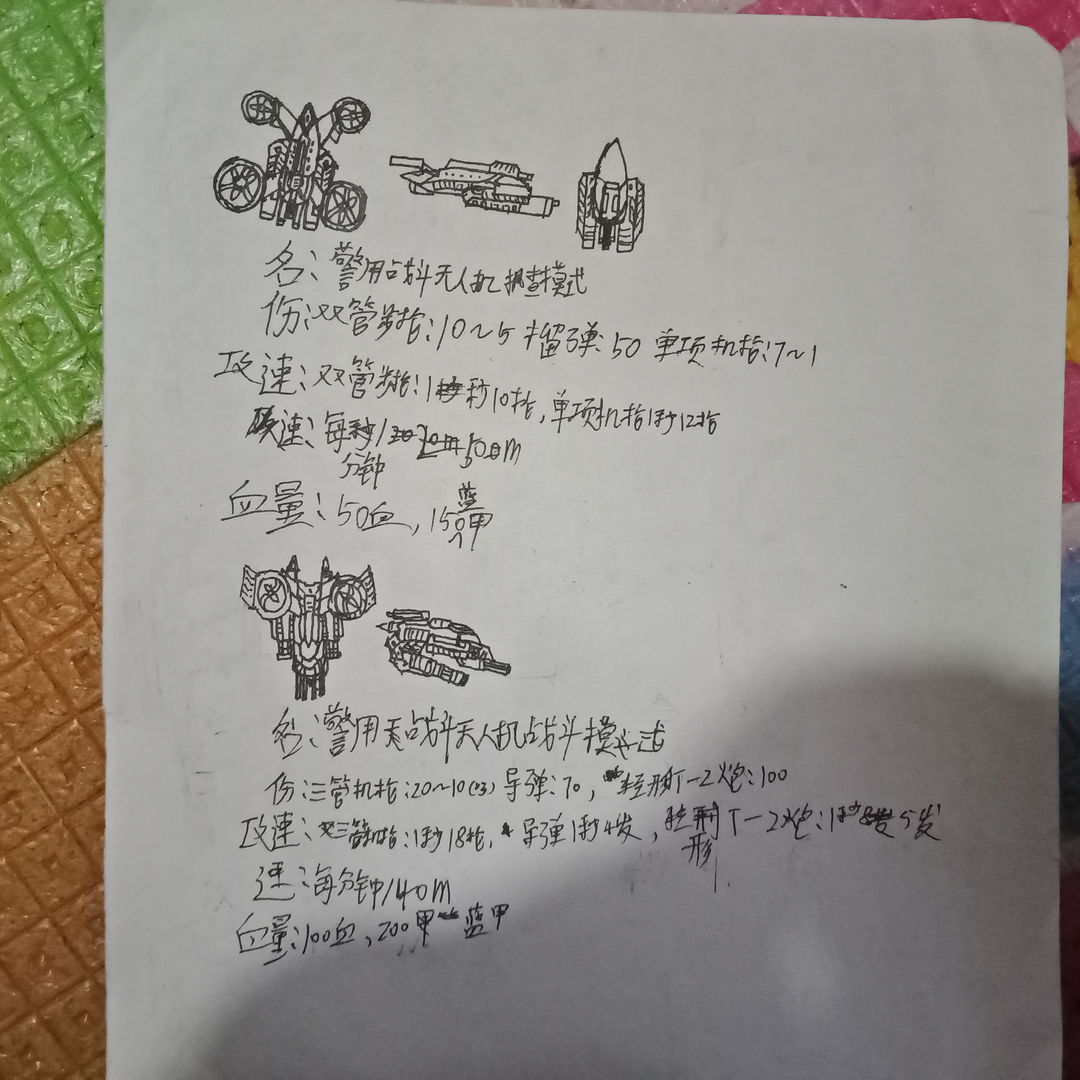 名:警用战斗无人机搜查模式
伤:双管步枪:10~5 榴弹:50 单项机枪:7~1
攻速:双管步枪:1秒10枪,单项机枪1秒12枪
速:每分钟150m
血量:50血,150蓝甲
名:警用战斗无人机战斗模式
伤:三管机枪:20~10 导弹:70,粒形T-2炮:100
攻速:三管机枪:1秒18枪,导弹1秒4发,粒形T-2炮:1秒5发
速:每分钟140m
血量:100血,200甲 蓝甲